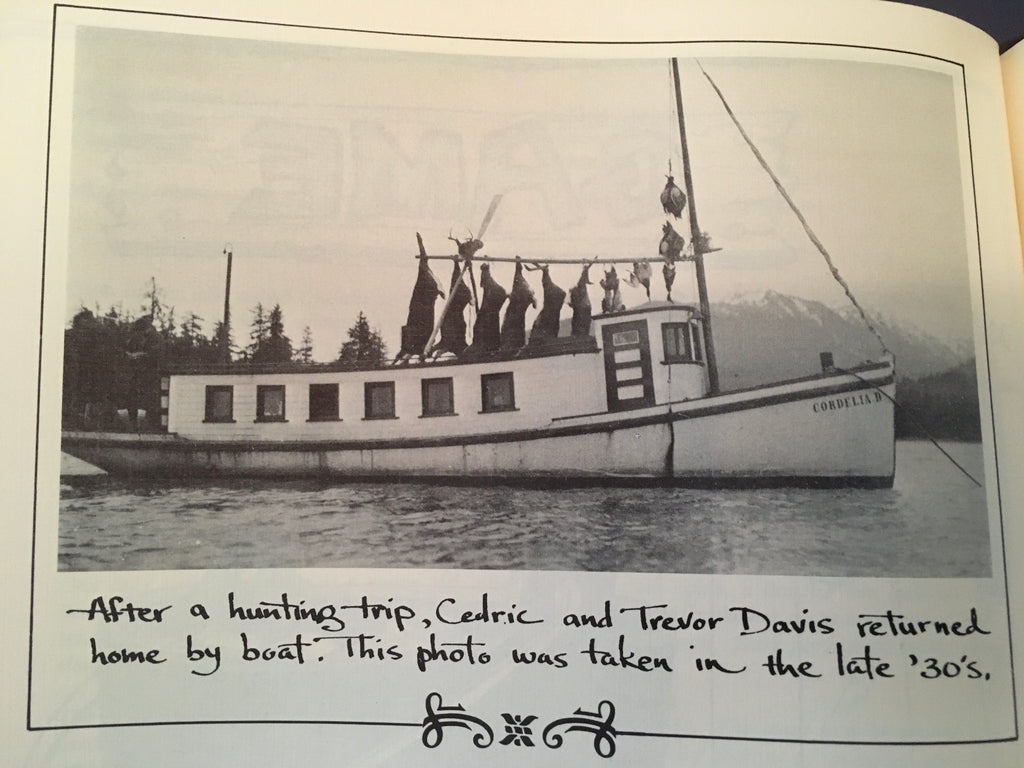 GAME
CORDELIA D
After a hunting trip, Cedric and Trevor Davis returned
home by boat. This photo was taken in the late '30's.